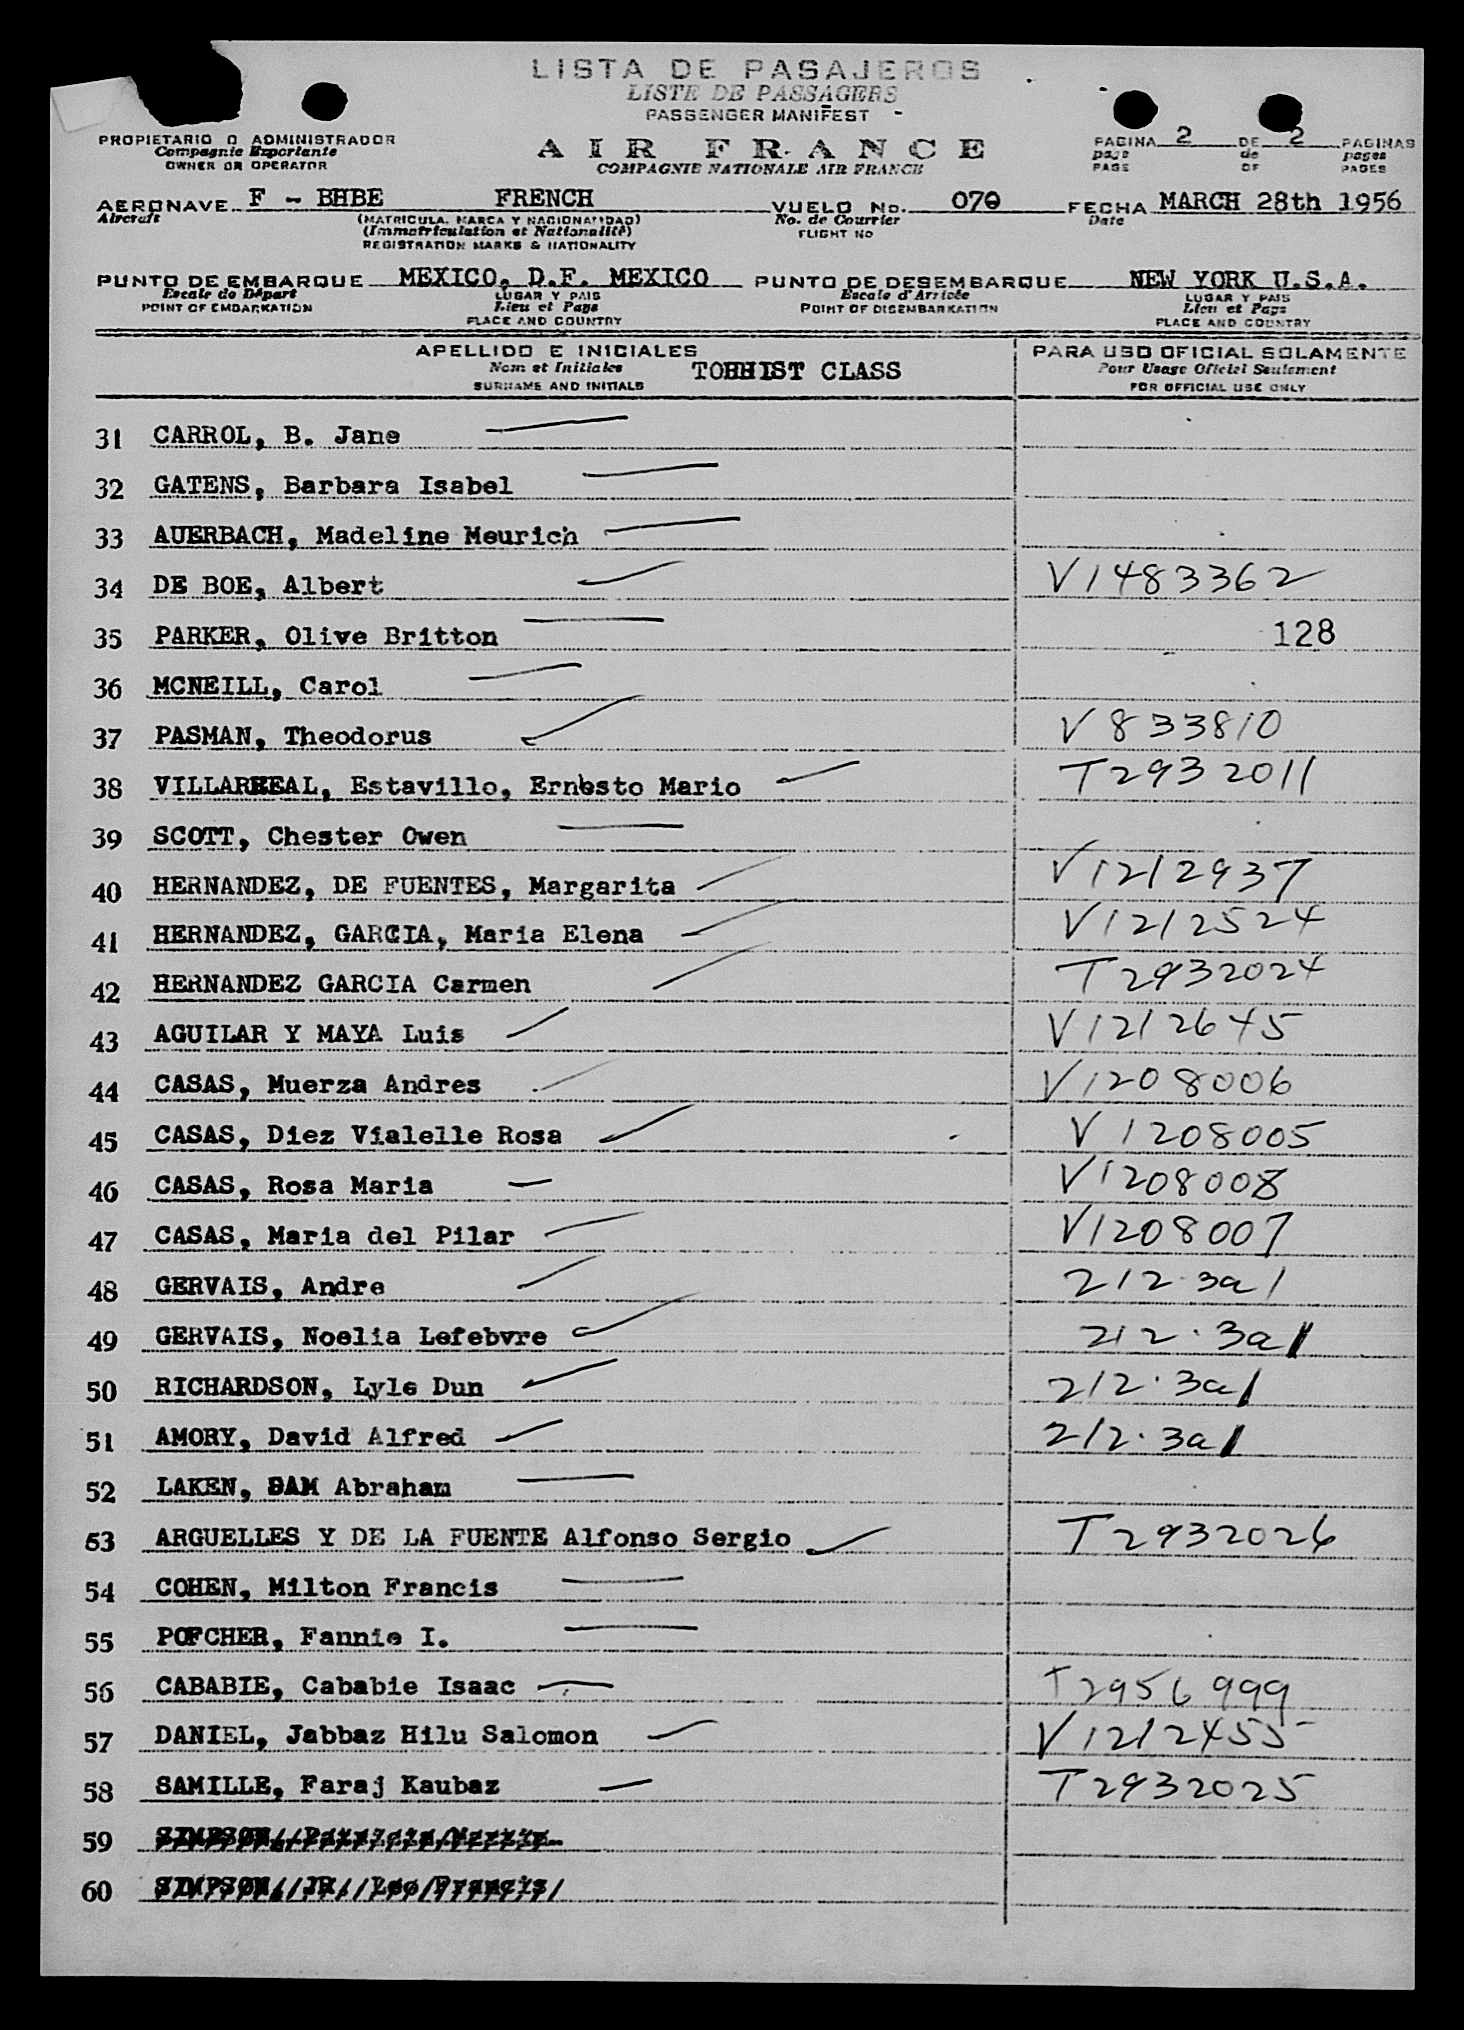 LISTA DE PASAJEROS
LISTE DE PASSAGERS
PASSENGER MANIFEST
PROPIETARIO O ADMINISTRADOR
Compagnie Exportante
OWNER OR OPERATOR
AIR FRANCE
COMPAGNIE NATIONALE AIR FRANCE
PAGINA 2 DE 2 PAGINAS
page de pages
PAGE OF PAGES
AERONAVE F - BHBE FRENCH VUELO No. 070 FECHA MARCH 28th 1956
Aircraft (MATRICULA, MARCA Y NACIONALIDAD) No. de Courrier Date
(Immatriculation et Nationalité) FLIGHT NO
REGISTRATION MARKS & NATIONALITY
PUNTO DE EMBARQUE MEXICO, D.F. MEXICO PUNTO DE DESEMBARQUE NEW YORK U.S.A.
Escale de Départ LUGAR Y PAIS Escale d'Arrivée LUGAR Y PAIS
POINT OF EMBARKATION Lieu et Pays POINT OF DISEMBARKATION Lieu et Pays
PLACE AND COUNTRY PLACE AND COUNTRY
APELLIDO E INICIALES PARA USO OFICIAL SOLAMENTE
Nom et Initiales CLASS Pour Usage Officiel Seulement
SURNAME AND INITIALS FOR OFFICIAL USE ONLY
31 CARROL, B. Jane
32 GATENS, Barbara Isabel
33 AUERBACH, Madeline Meurich
34 DE BOE, Albert V1483362
35 PARKER, Olive Britton 128
36 MCNEILL, Carol
37 PASMAN, Theodorus V 833810
38 VILLARREAL, Estavillo, Ernesto Mario T2932011
39 SCOTT, Chester Owen
40 HERNANDEZ, DE FUENTES, Margarita V1212937
41 HERNANDEZ, GARCIA, Maria Elena V1212524
42 HERNANDEZ GARCIA Carmen T2932024
43 AGUILAR Y MAYA Luis V1212645
44 CASAS, Muerza Andres V1208006
45 CASAS, Diez Vialelle Rosa V1208005
46 CASAS, Rosa Maria V1208008
47 CASAS, Maria del Pilar V1208007
48 GERVAIS, Andre 212.3a1
49 GERVAIS, Noelia Lefebvre 212.3a1
50 RICHARDSON, Lyle Dun 212.3a1
51 AMORY, David Alfred 212.3a1
52 LAKEN, SAM Abraham
53 ARGUELLES Y DE LA FUENTE Alfonso Sergio T2932026
54 COHEN, Milton Francis
55 POFCHER, Fannie I.
56 CABABIE, Cababie Isaac T2956999
57 DANIEL, Jabbaz Hilu Salomon V1212455
58 SAMILLE, Faraj Kaubaz T2932025
59 SIMPSON,
60 SIMPSON, JR. Leo Francis